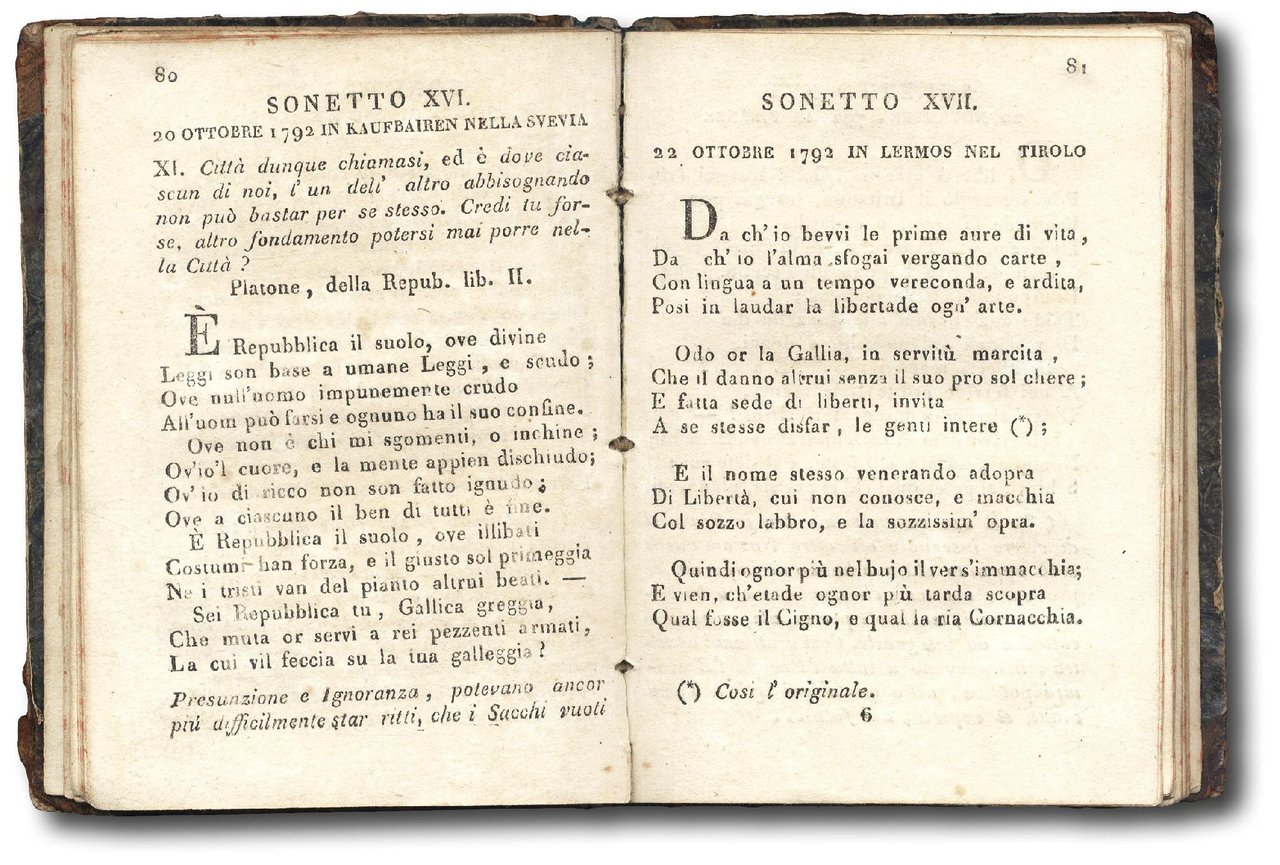 80
SONETTO XVI.
20 OTTOBRE 1792 IN KAUFBAIREN NELLA SVEVIA
XI. Città dunque chiamasi, ed è dove cia-
scun di noi, l'un dell' altro abbisognando
non può bastar per se stesso. Credi tu for-
se, altro fondamento potersi mai porre nel-
la Città ?
Platone, della Repub. lib. II.
È Repubblica il suolo, ove divine
Leggi son base a umane Leggi, e scudo ;
Ove null'uomo impunemente crudo
All'uom può farsi e ognuno ha il suo confine.
Ove non è chi mi sgomenti, o inchine ;
Ov'io'l cuore, e la mente appien dischiudo;
Ov' io di ricco non son fatto ignudo ;
Ove a ciascuno il ben di tutti è fine.
È Repubblica il suolo, ove illibati
Costumi han forza, e il giusto sol primeggia
Ne i tristi van del pianto altrui beati. —
Sei Repubblica tu, Gallica greggia,
Che muta or servi a rei pezzenti armati,
La cui vil feccia su la tua galleggia ?
Presunzione e Ignoranza, potevano ancor
più difficilmente star ritti, che i Sacchi vuoti
81
SONETTO XVII.
22 OTTOBRE 1792 IN LERMOS NEL TIROLO
Da ch'io bevvi le prime aure di vita,
Da ch' io l'alma sfogai vergando carte,
Con lingua a un tempo vereconda, e ardita,
Posi in laudar la libertade ogn' arte.
Odo or la Gallia, in servitù marcita,
Che il danno altrui senza il suo pro sol chere ;
E fatta sede di liberti, invita
A se stesse disfar, le genti intere (*) ;
E il nome stesso venerando adopra
Di Libertà, cui non conosce, e macchia
Col sozzo labbro, e la sozzissim' opra.
Quindi ognor più nel bujo il ver s'immacchia;
E vien, ch'etade ognor più tarda scopra
Qual fosse il Cigno, e qual la ria Cornacchia.
(*) Così l'originale.
6